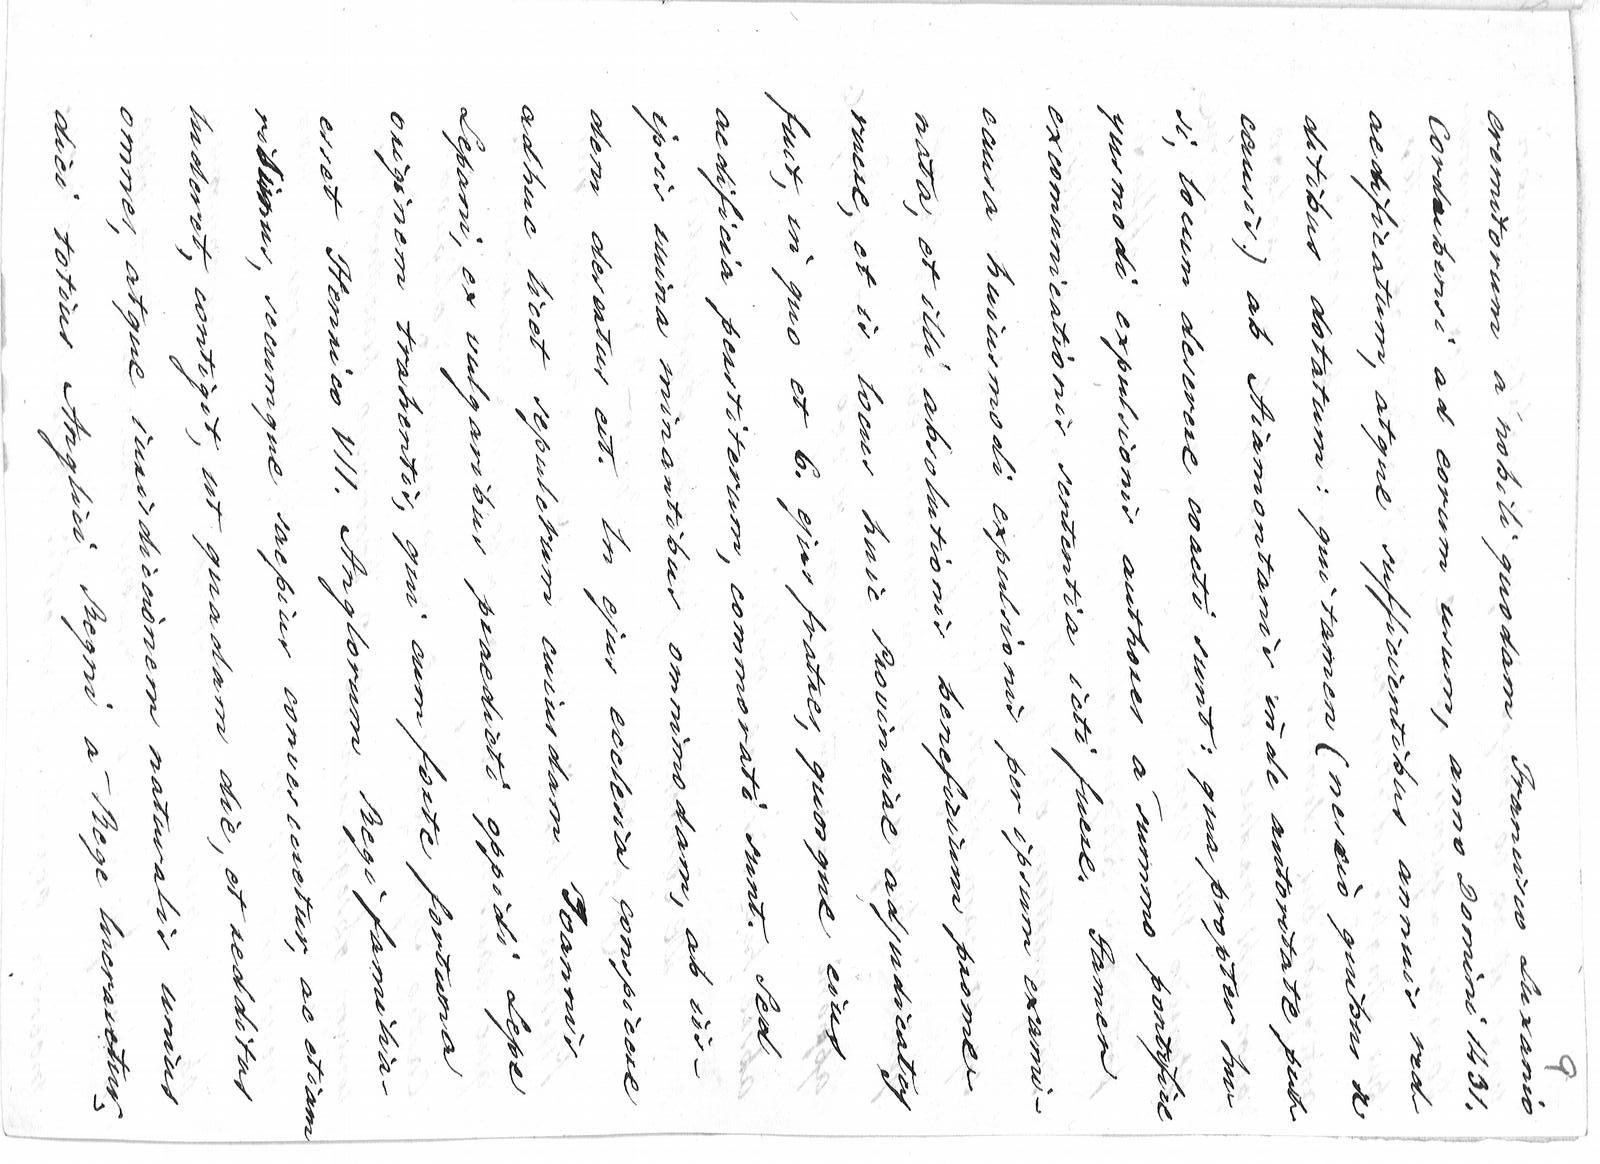 9
eremitorum a nobili quodam Francisco Luxanio
Cordubensi ad eorum usum, anno Domini 1431.
aedificatum, atque sufficientibus annuis red
ditibus dotatum: qui tamen (nescio quibus
causis) ab Aiamontanis inde autoritate pub
si, locum deserere coacti sunt: qua propter huv
yusmodi expulsionis authores a summo pontifice
excommunicationis sententia icti fuere. Tamen
causa huiusmodi expulsionis per ipsum exami-
nata, et illi absolutionis beneficium prome-
ruere, et is locus huic Provinciae adjudicatus
fuit, in quo et 6. ejus fratres, quoque eius
aedificia perstiterunt, commorati sunt. Sed
ipsis ruina minantibus ommimodam, ab iis-
dem desertus est. In ejus ecclesia conspicere
adhuc licet sepulcrum cuiusdam Ioannis
Lepani, ex vulgaribus praedicti oppidi Lepe
originem trahentis, qui cum forte fortuna
esset Henrico VII. Anglorum Regi familia-
rissimus, secumque saepius conuesceretur, ac etiam
luderet, contigit, ut quadam die, et redditus
omnes, atque iurisdicionem naturalis unius
diei totius Anglici Regni a Rege lucraretur,